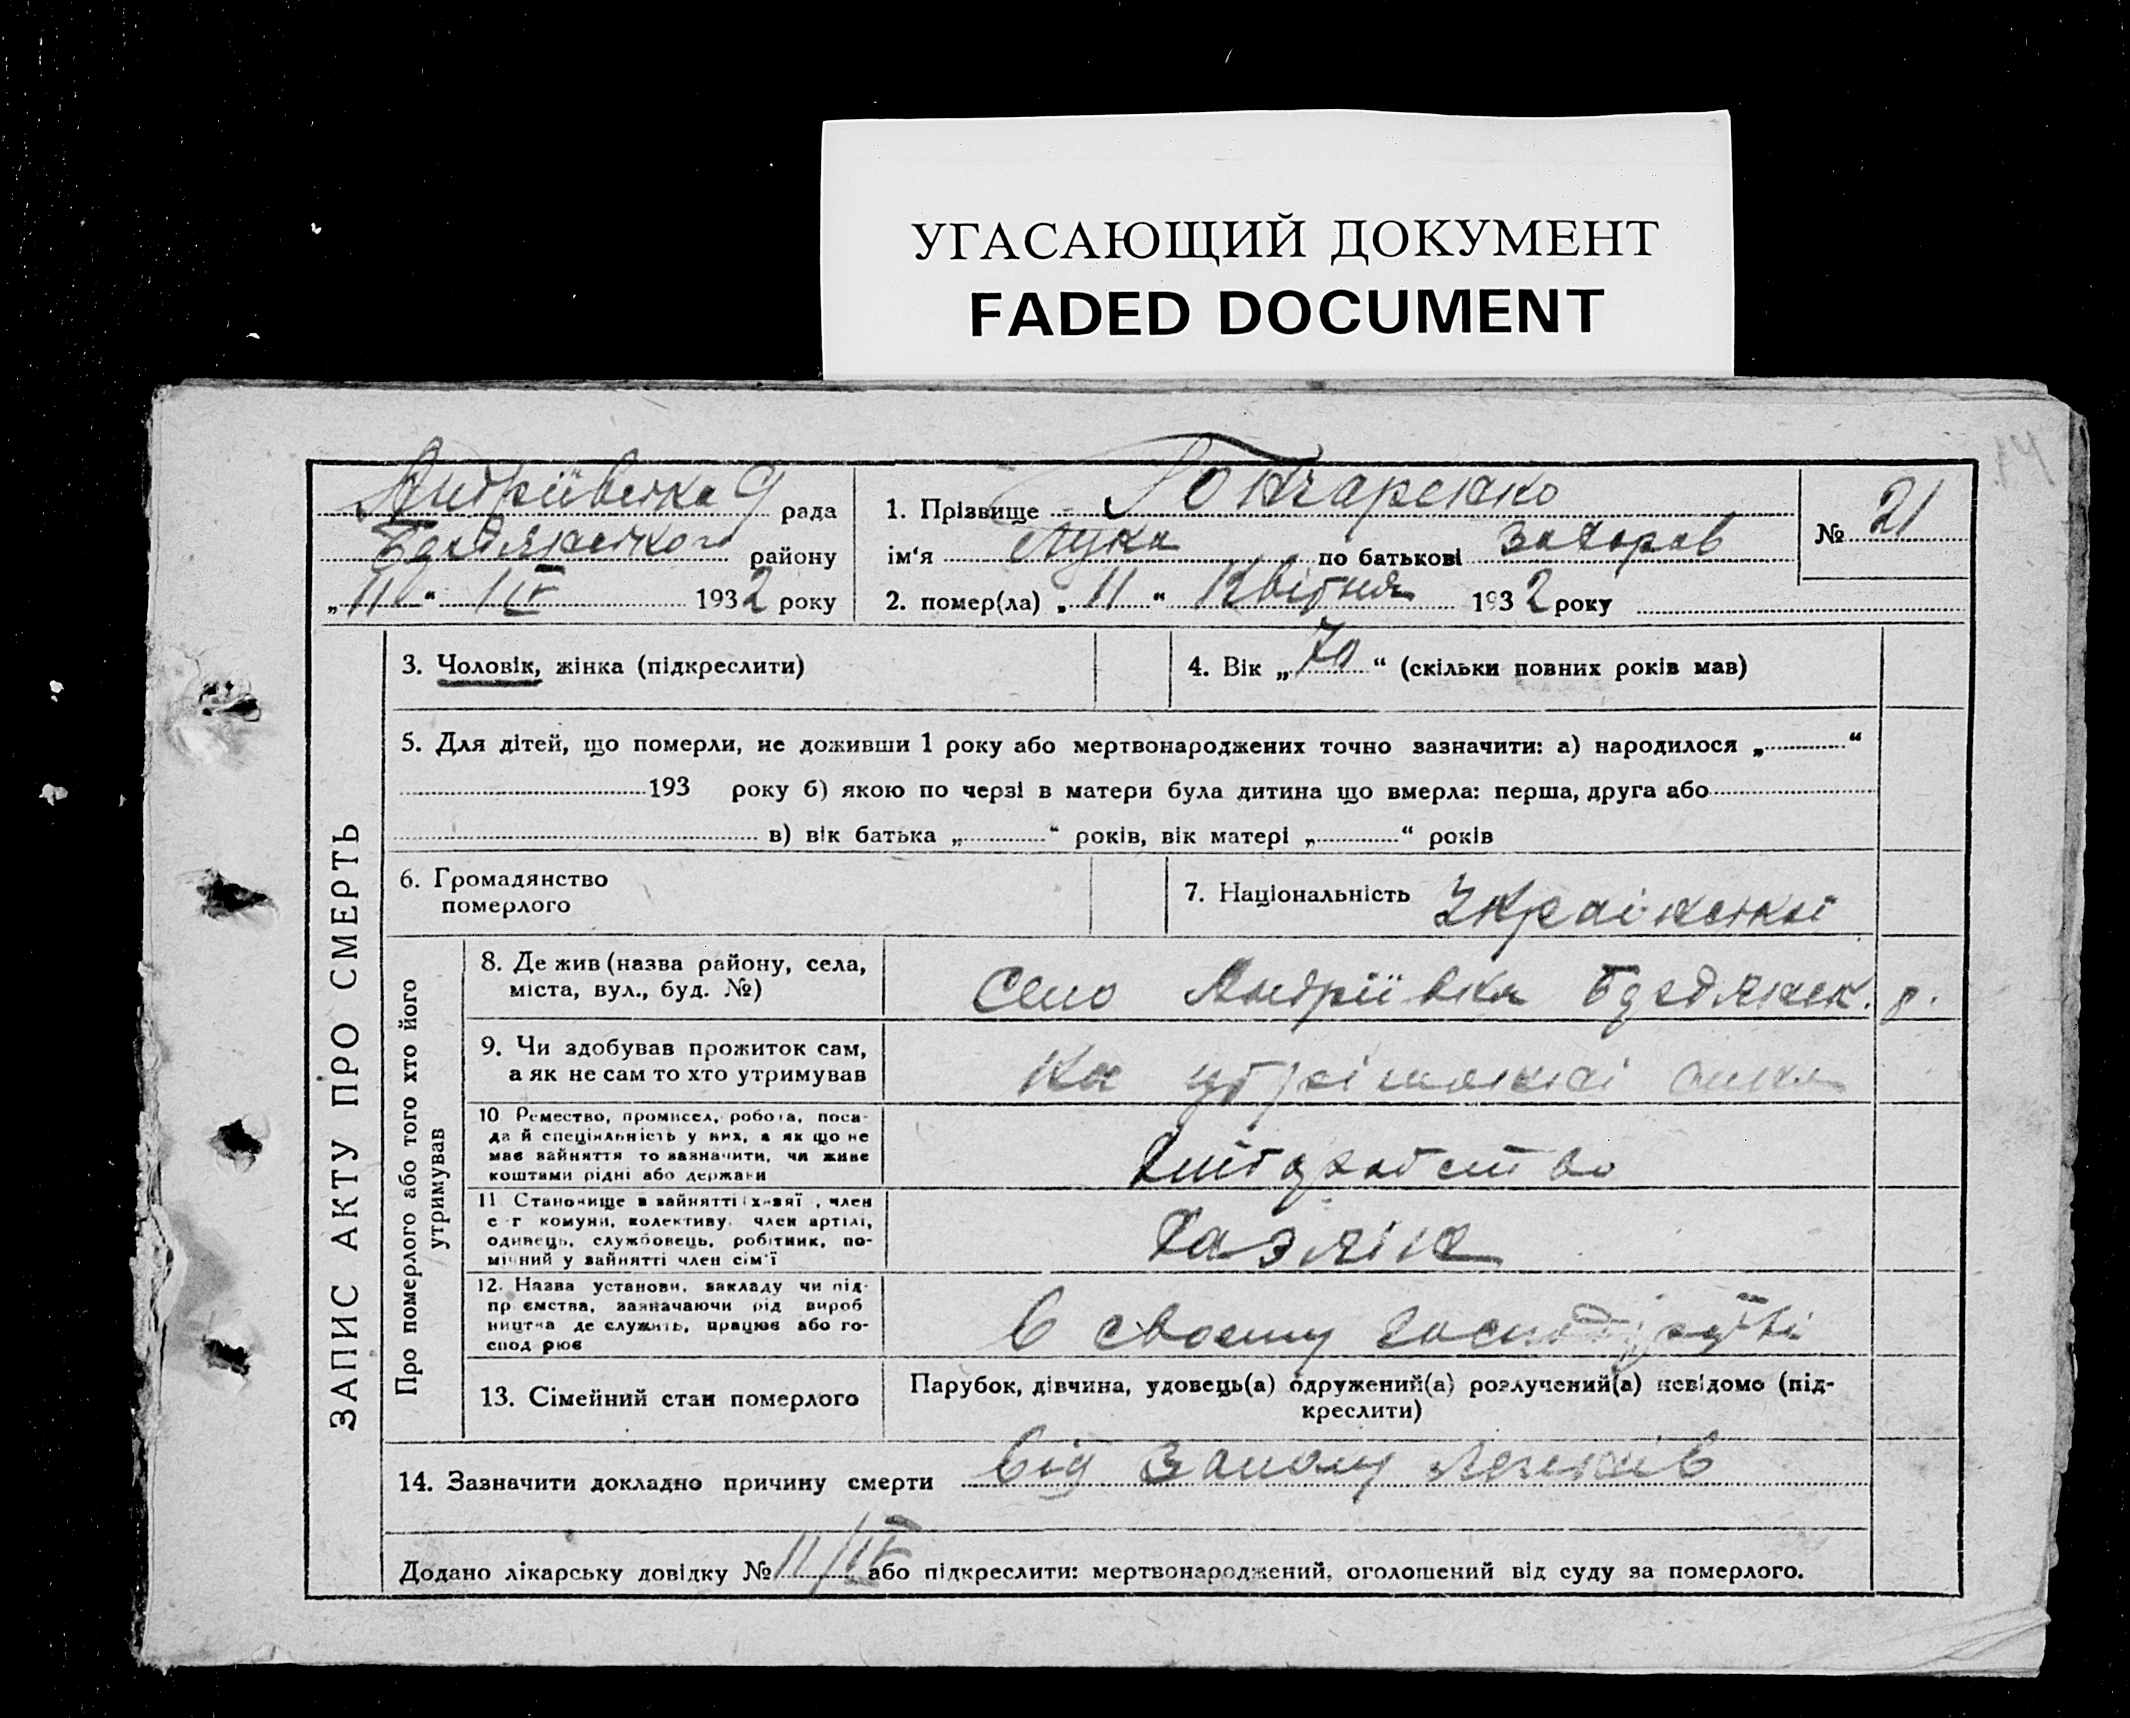 УГАСАЮЩИЙ ДОКУМЕНТ
FADED DOCUMENT
Андріівська рада
району
„11“ IV 1932 року
1. Прізвище Гончаренко
ім‘я Лука по батькові Захоров
№ 21
2. помер(ла) „11“ Квітня 1932 року
ЗАПИС АКТУ ПРО СМЕРТЬ
3. Чоловік, жінка (підкреслити)
4. Вік „70“ (скільки повних років мав)
5. Для дітей, що померли, не доживши 1 року або мертвонароджених точно зазначити: а) народилося „ “
193 року б) якою по черзі в матери була дитина що вмерла: перша, друга або
в) вік батька „ “ років, вік матері „ “ років
6. Громадянство
померлого
7. Національність Украінськоі
Про померлого або того хто його
утримував
8. Де жив (назва району, села,
міста, вул., буд. №)
Село Андріівка р.
9. Чи здобував прожиток сам,
а як не сам то хто утримував
На утріманні сина
10 Ремество, промисел, робота, поса-
да й спеціяльність у них, а як що не
має зайняття то зазначити, чи живе
коштами рідні або держави
11 Становище в зайнятті , член
с-г комуни, колективу, член артілі,
одинець, службовець, робітник, по-
мічний у зайнятті член сім‘ї
Хазяін
12. Назва установи, закладу чи під-
пр ємства, зазначаючи рід вироб
ництва де служить, працює або го-
спод рює
В своему
13. Сімейний стан померлого
Парубок, дівчина, удовець(а) одружений(а) розлучений(а) невідомо (під-
креслити)
14. Зазначити докладно причину смерти Від Запалу Легенів
Додано лікарську довідку № 11/IV або підкреслити: мертвонароджений, оголошений від суду за померлого.